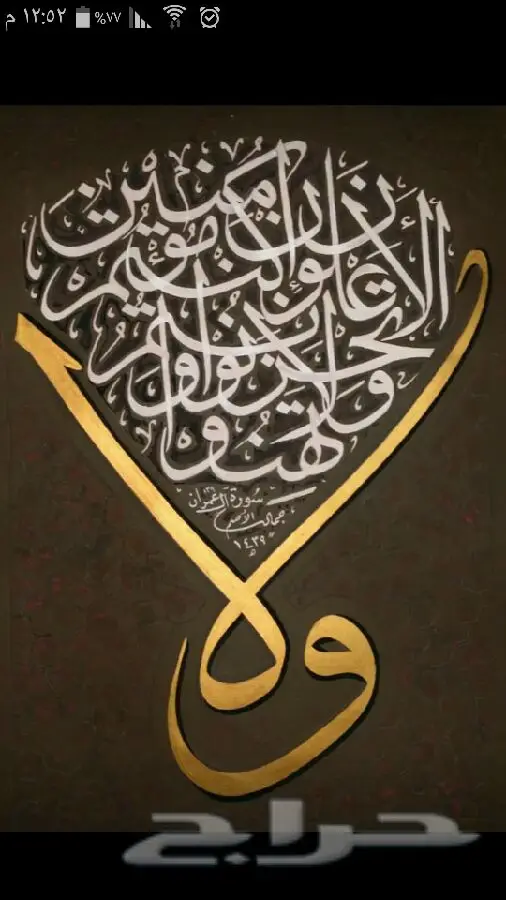 ١٢:٥٢ م %٧٧
ولا
تهنوا
ولا تحزنوا وأنتم
الأعلون إن كنتم مؤمنين
سورة آل عمران
جمال
١٤٣٩ ه
حراج